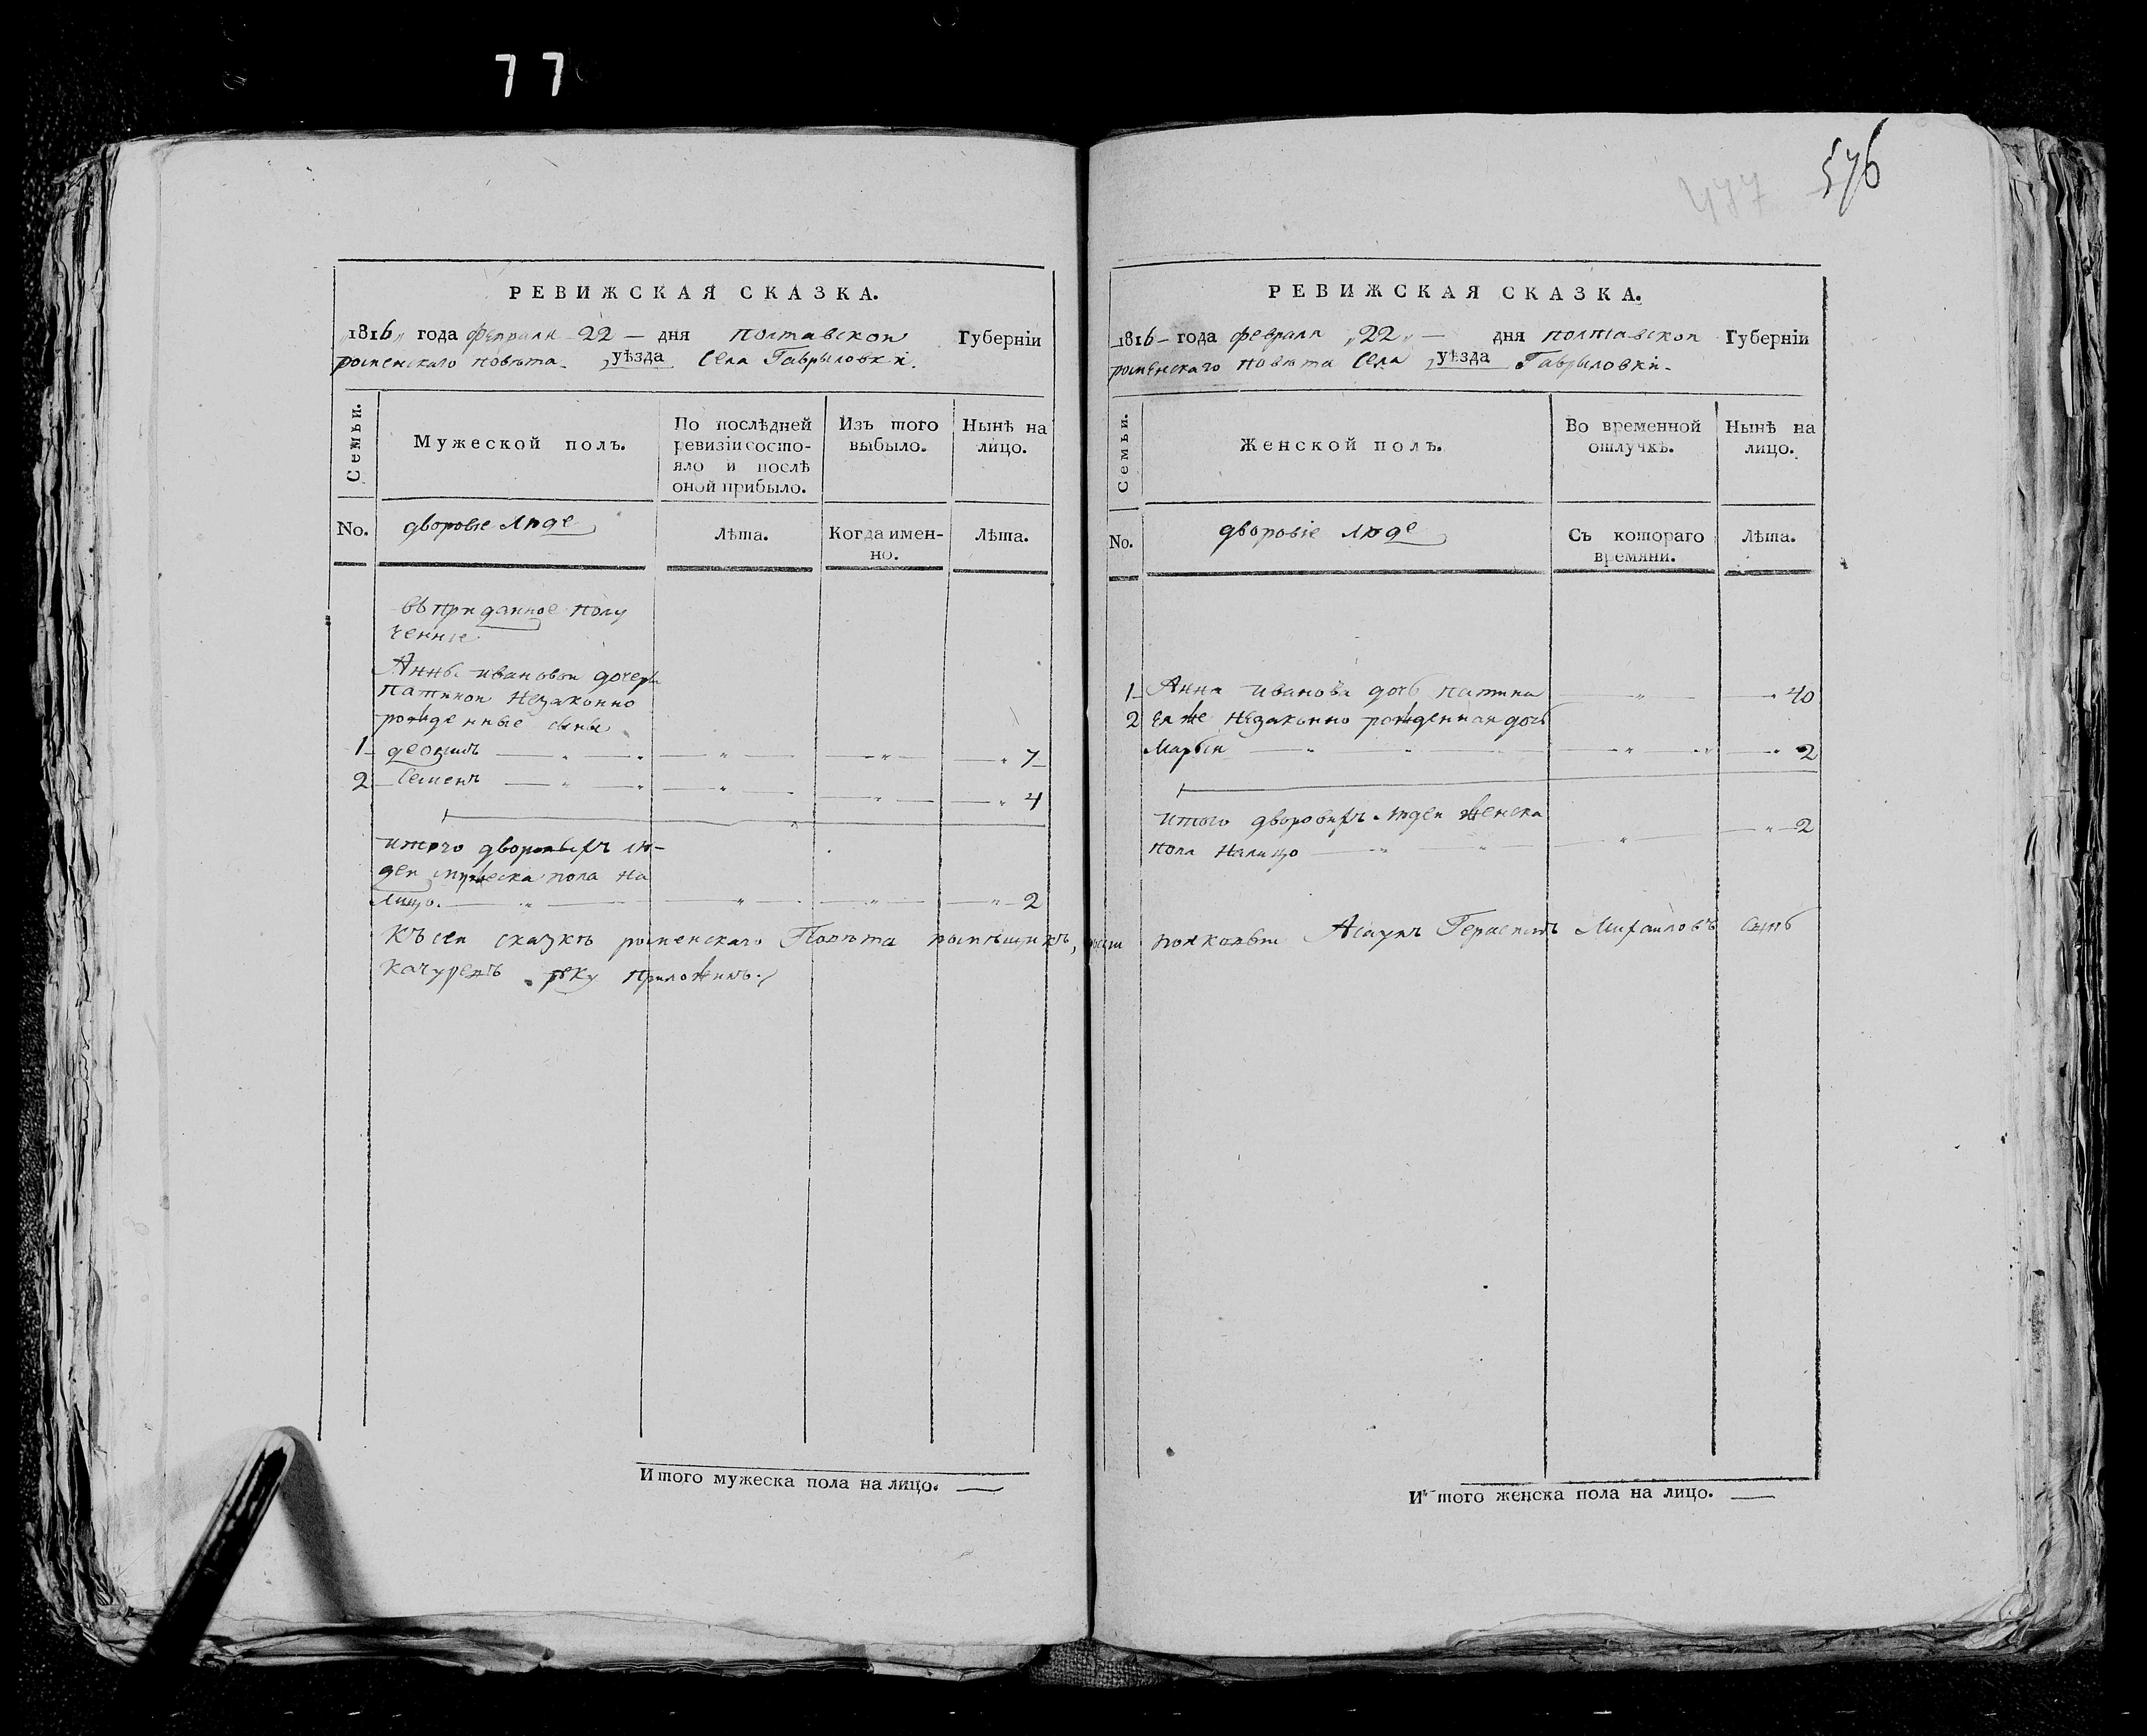 77
РЕВИЖСКАЯ СКАЗКА.
1816 года февраля 22 — дня полтавской Губерніи
роменскаго повѣта уѣзда Села Гаврыловкі.
Семьи.
Мужеской полъ.
По послѣдней ревизіи состо-
яло и послѣ
оной прибыло.
Изъ того
выбыло.
Нынѣ на
лицо.
No.
дворовіе люде
Лѣта.
Когда имен-
но.
Лѣта.
въ приданное полу
ченніе
Анны ивановой дочери
патиной незаконно
рожденные сыны
1 — 7
2 Семенъ — 4
итого дворовыхъ лю-
дей мужеска пола на
лицо. — 2
Къ сей сказкѣ роменскаго Повѣта помѣщикъ,
качуренъ руку приложилъ
Итого мужеска пола на лицо. —
576
477
РЕВИЖСКАЯ СКАЗКА.
1816 года февраля 22 — дня полтавской Губерніи
роменскаго повѣта Села уѣзда Гаврыловкі.
Семьи.
Женской полъ.
Во временной
отлучкѣ.
Нынѣ на
лицо.
No.
дворовіе люде
Съ котораго
времяни.
Лѣта.
1 Анна иванова дочь патина — 40
2 ея же незаконно рожденная дочь
Марья — 2
итого дворовихъ людей женска
пола налицо — 2
Асаулъ Герасимъ Михайловъ сынъ
Итого женска пола на лицо. —